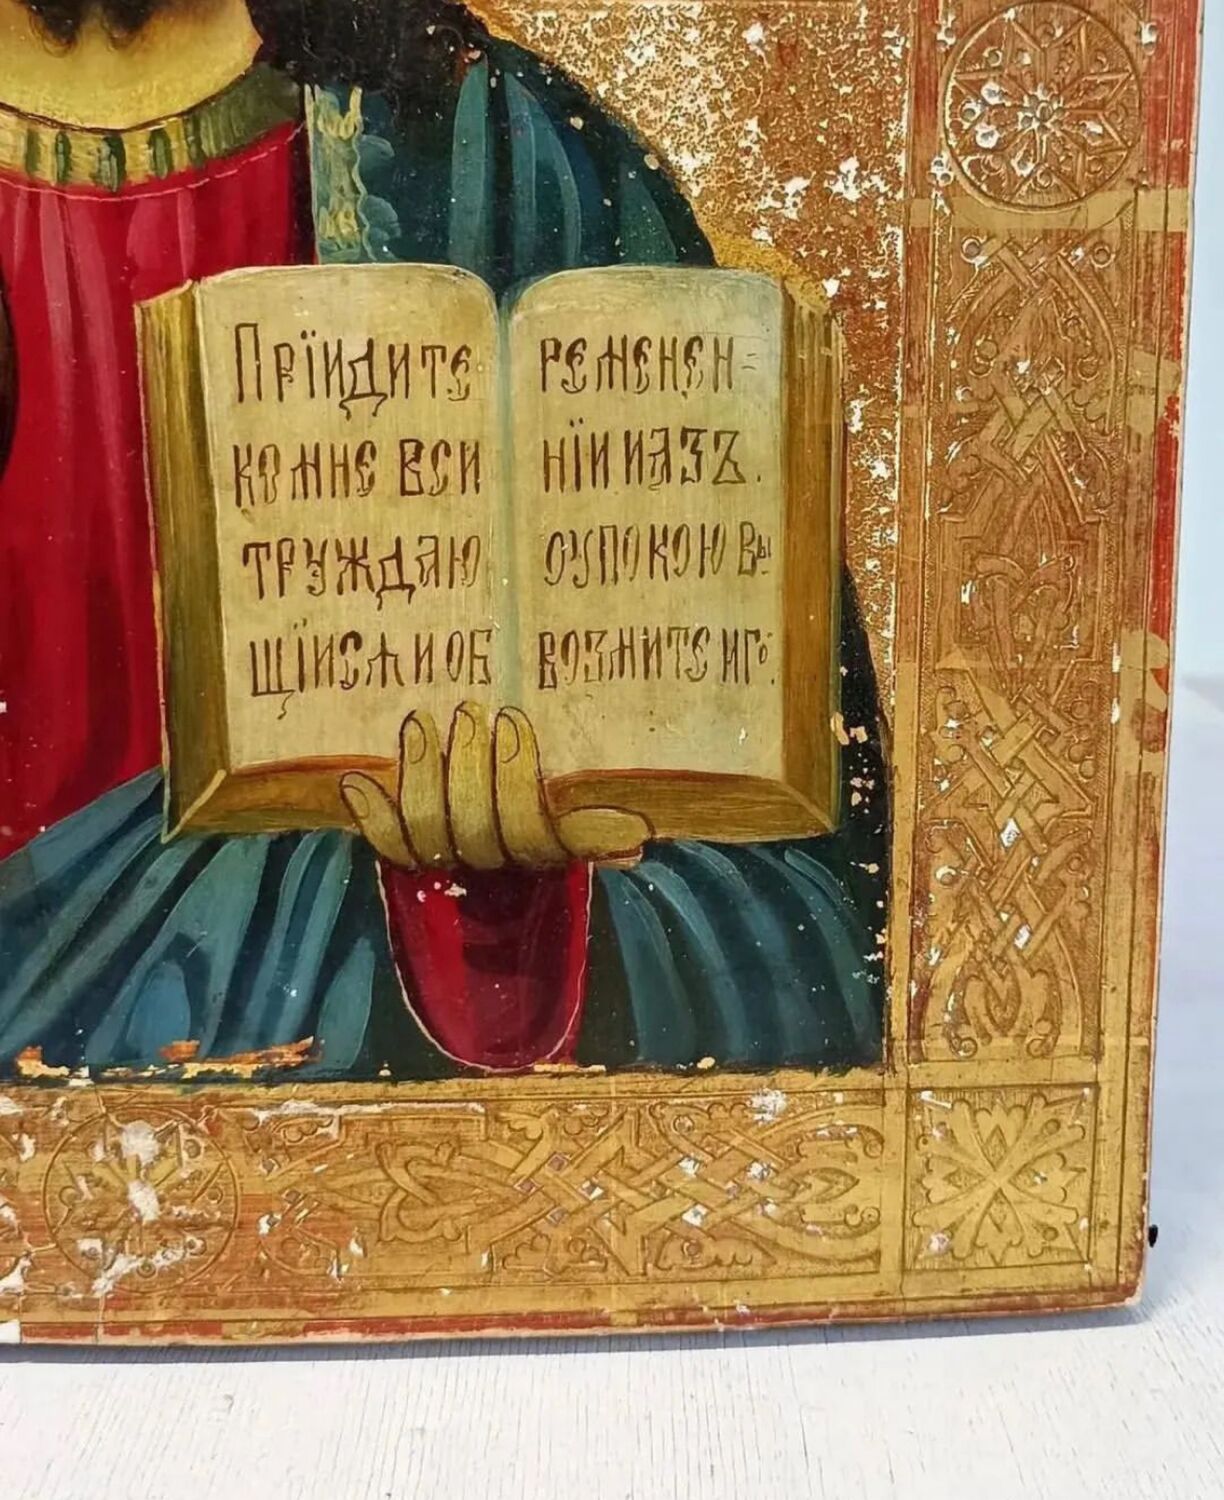 Прїидите
ко мне вси
труждаю
щїися и об
ременен-
нїи и азъ.
оупокою вы
возмите иго: